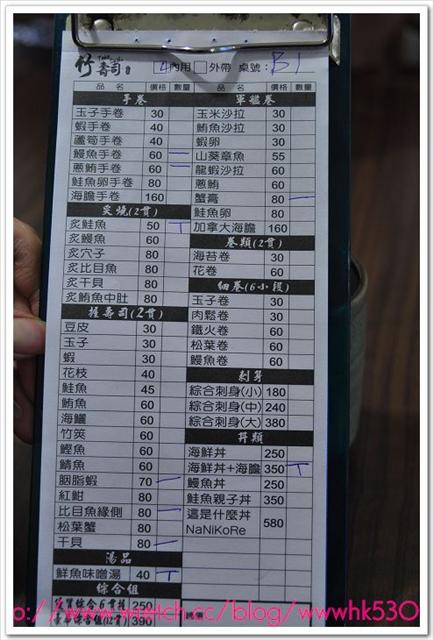 竹壽司 4內用 □外帶 桌號：B1
品名 價格 數量
手卷
玉子手卷 30
蝦手卷 40
蘆筍手卷 40
鰻魚手卷 60
蔥鮪手卷 60
鮭魚卵手卷 80
海膽手卷 160
炙燒(2貫)
炙鮭魚 50
炙鰻魚 60
炙穴子 80
炙比目魚 80
炙干貝 80
炙鮪魚中肚 80
握壽司(2貫)
豆皮 30
玉子 30
蝦 30
花枝 40
鮭魚 45
鮪魚 60
海鱺 60
竹筴 60
鰹魚 60
鯖魚 60
胭脂蝦 70
紅魽 80
比目魚緣側 80
松葉蟹 80
干貝 80
湯品
鮮魚味噌湯 40
綜合組
250
390
品名 價格 數量
軍艦卷
玉米沙拉 30
鮪魚沙拉 30
蝦卵 30
山葵章魚 55
龍蝦沙拉 60
蔥鮪 60
蟹膏 80
鮭魚卵 80
加拿大海膽 160
卷類(2貫)
海苔卷 30
花卷 60
細卷(6小段)
玉子卷 30
肉鬆卷 30
鐵火卷 60
松葉卷 60
鰻魚卷 60
刺身
綜合刺身(小) 180
綜合刺身(中) 240
綜合刺身(大) 380
丼類
海鮮丼 250
海鮮丼+海膽 350
鰻魚丼 250
鮭魚親子丼 350
這是什麼丼
NaNiKoRe 580